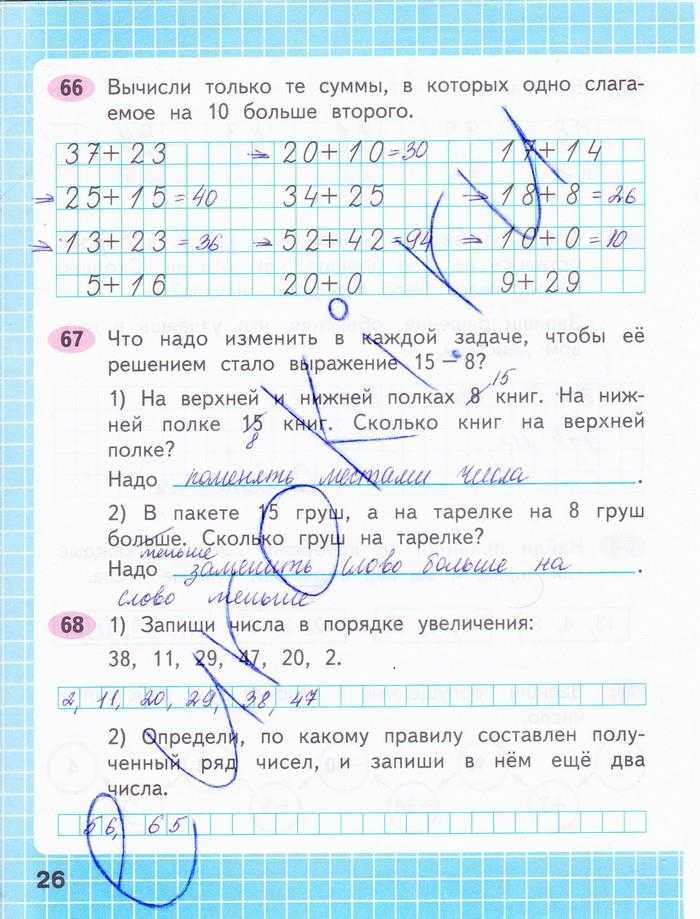 66 Вычисли только те суммы, в которых одно слага-
емое на 10 больше второго.
37+23 ⇒ 20+10=30 17+14
⇒ 25+15=40 34+25 ⇒ 18+8=26
⇒ 13+23=36 ⇒ 52+42=94 ⇒ 10+0=10
5+16 20+0 9+29
67 Что надо изменить в каждой задаче, чтобы её
решением стало выражение 15 – 8?
15
1) На верхней и нижней полках 8 книг. На ниж-
ней полке 15 книг. Сколько книг на верхней
8
полке?
Надо поменять местами числа.
2) В пакете 15 груш, а на тарелке на 8 груш
больше. Сколько груш на тарелке?
меньше
Надо заменить слово больше на.
слово меньше
68 1) Запиши числа в порядке увеличения:
38, 11, 29, 47, 20, 2.
2, 11, 20, 29, 38, 47
2) Определи, по какому правилу составлен полу-
ченный ряд чисел, и запиши в нём ещё два
числа.
56, 65
26